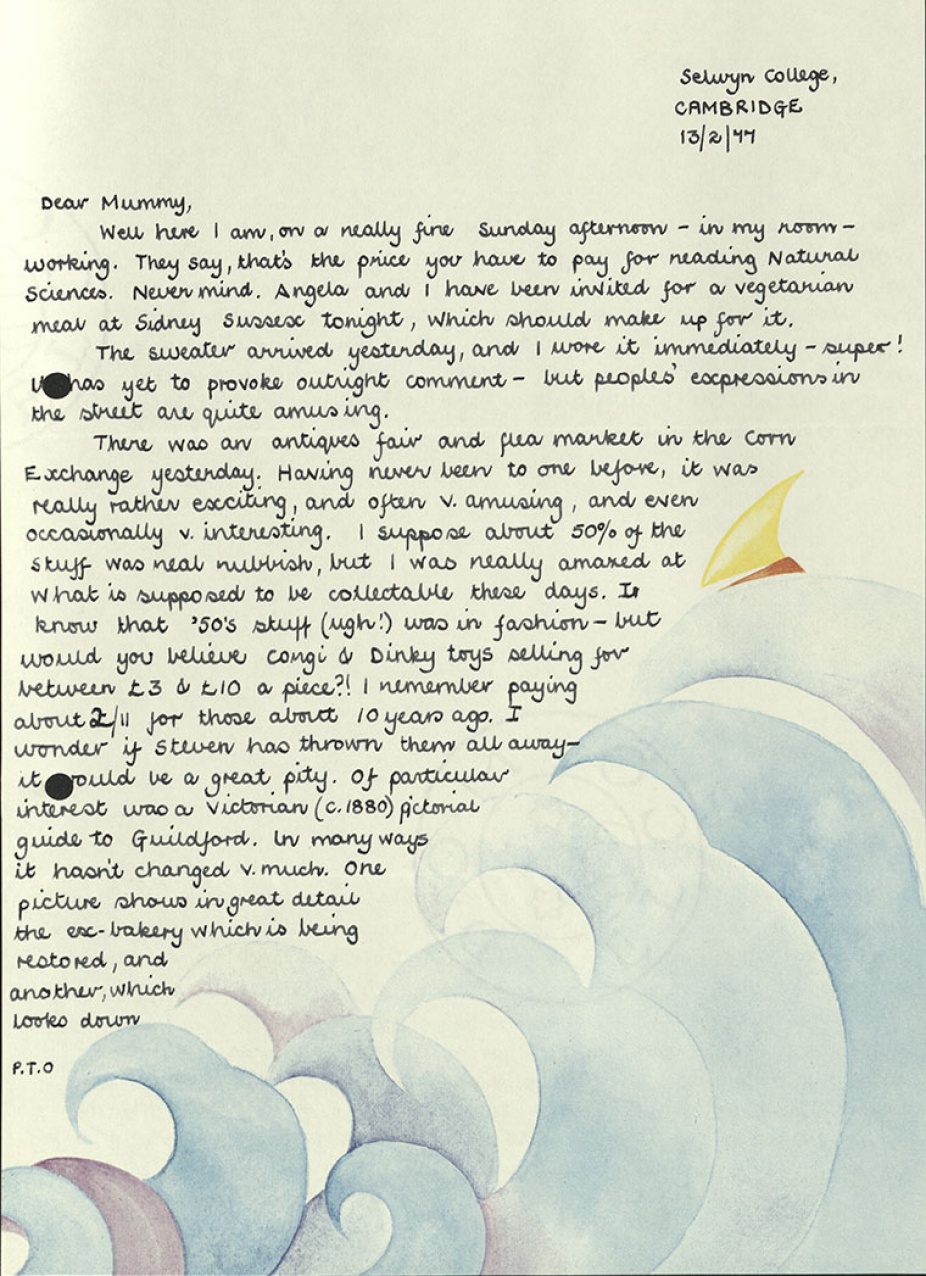 Selwyn College,
CAMBRIDGE
13/2/77
Dear Mummy,
Well here I am, on a really fine Sunday afternoon – in my room –
working. They say, that's the price you have to pay for reading Natural
Sciences. Never mind. Angela and I have been invited for a vegetarian
meal at Sidney Sussex tonight, which should make up for it.
The sweater arrived yesterday, and I wore it immediately – super!
has yet to provoke outright comment – but peoples' expressions in
the street are quite amusing.
There was an antiques fair and flea market in the Corn
Exchange yesterday. Having never been to one before, it was
really rather exciting, and often v. amusing, and even
occasionally v. interesting. I suppose about 50% of the
stuff was real rubbish, but I was really amazed at
what is supposed to be collectable these days. I
know that '50's stuff (ugh!) was in fashion – but
would you believe Corgi & Dinky toys selling for
between £3 & £10 a piece?! I remember paying
about 2/11 for those about 10 years ago. I
wonder if Steven has thrown them all away –
it would be a great pity. Of particular
interest was a Victorian (c.1880) pictorial
guide to Guildford. In many ways
it hasn't changed v. much. One
picture shows in great detail
the ex-bakery which is being
restored, and
another, which
looks down
P.T.O